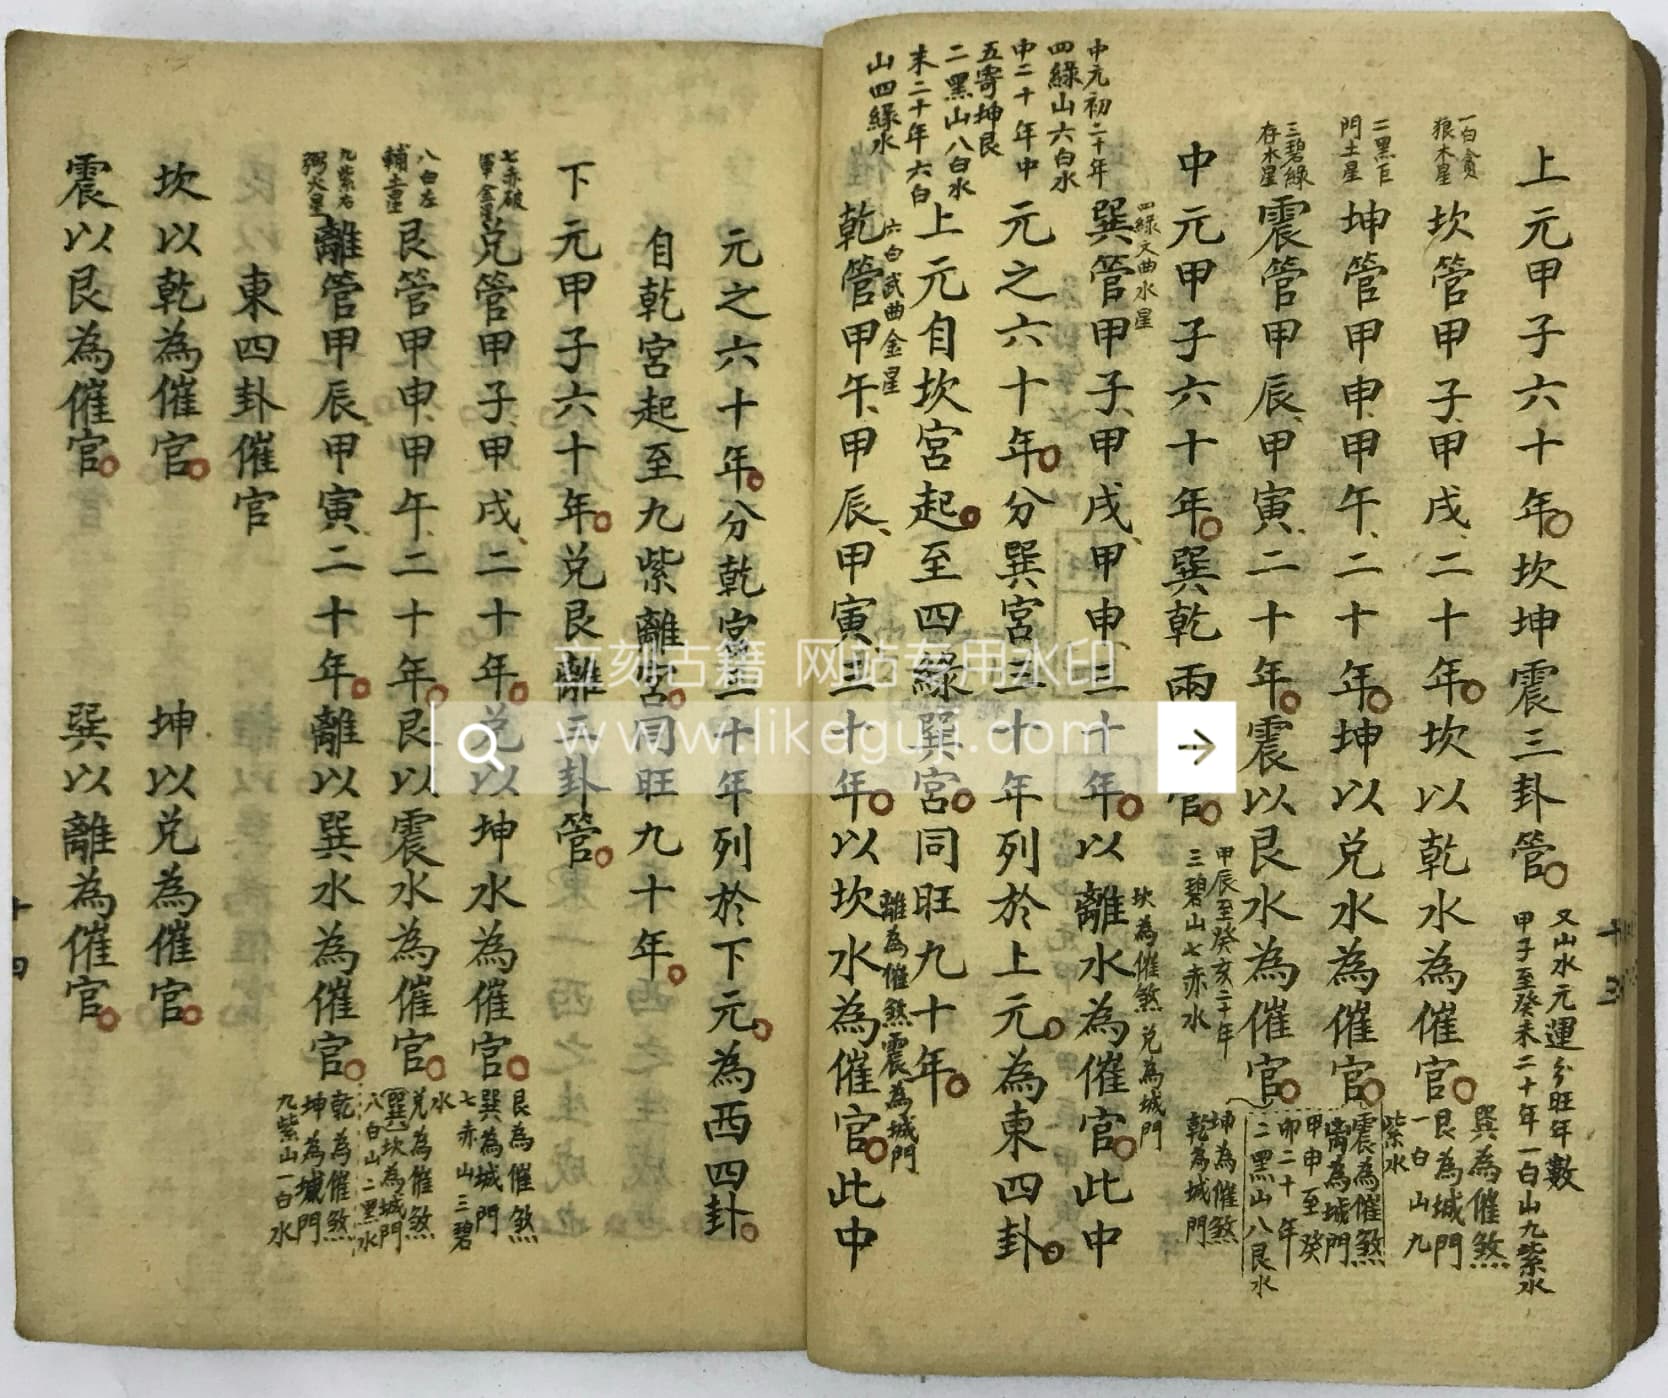 上元甲子六十年坎坤震三卦管
又山水元運分旺年數
甲子至癸未二十年一白山九紫水
一白貪
狼木星
坎管甲子甲戌二十年坎以乾水為催官
巽為催煞
艮為城門
一白山九
紫水
二黑巨
門土星
坤管甲申甲午二十年坤以兌水為催官
震為催煞
离為城門
甲申至癸
卯二十年
二黑山八艮水
三碧綠
存木星
震管甲辰甲寅二十年震以艮水為催官
坤為催煞
乾為城門
甲辰至癸亥二十年
三碧山七赤水
中元甲子六十年巽乾兩官
四綠文曲水星
中元初二十年
四綠山六白水
中二十年中
五寄坤艮
二黑山八白水
末二十年六白
山四綠水
巽管甲子甲戌甲申三十年以離水為催官此中
坎為催煞兌為城門
元之六十年分巽宮三十年列於上元為東四卦
上元自坎宮起至四綠巽宮同旺九十年
六白武曲金星
乾管甲午甲辰甲寅三十年以坎水為催官此中
離為催煞震為城門
元之六十年分乾宮三十年列於下元為西四卦
自乾宮起至九紫離宮同旺九十年
下元甲子六十年兌艮離三卦管
七赤破
軍金星
兌管甲子甲戌二十年兌以坤水為催官
艮為催煞
巽為城門
七赤山三碧
水
八白左
輔土星
艮管甲申甲午二十年艮以震水為催官
兌為催煞
巽坎為城門
八白山二黑水
九紫右
弼火星
離管甲辰甲寅二十年離以巽水為催官
乾為催煞
坤為城門
九紫山一白水
東四卦催官
坎以乾為催官 坤以兌為催官
震以艮為催官 巽以離為催官
十三
十四
立刻古籍 网站专用水印
www.likeguji.com